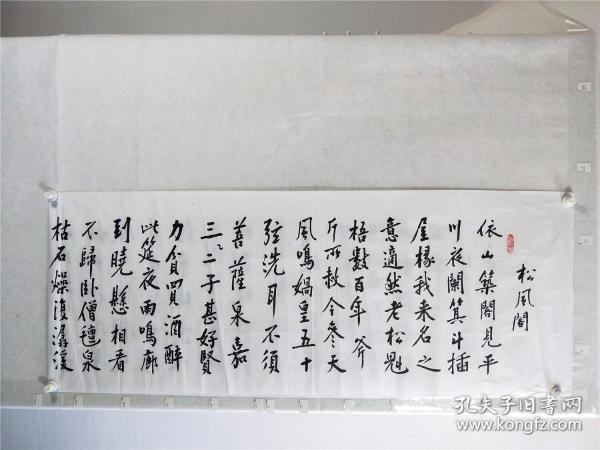 松風閣
依山築閣見平
川夜闌箕斗插
屋椽我来名之
意適然老松魁
梧數百年斧
斤所赦今参天
風鳴媧皇五十
弦洗耳不須
菩薩泉嘉
三二子甚好賢
力貧買酒醉
此筵夜雨鳴廊
到曉懸相看
不歸卧僧氊泉
枯石燥復潺湲
孔夫子旧书网
www.kongfz.com